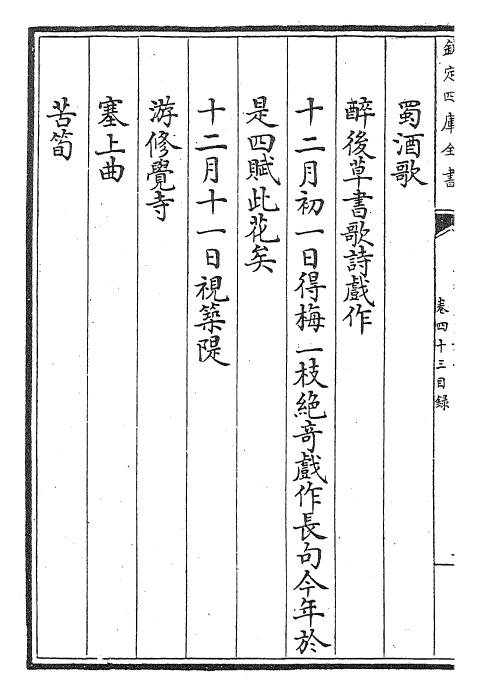 欽定四庫全書
卷四十三目録
蜀酒歌
醉後草書歌詩戲作
十二月初一日得梅一枝絶奇戲作長句今年於
是四賦此花矣
十二月十一日視築隄
游修覺寺
塞上曲
苦筍